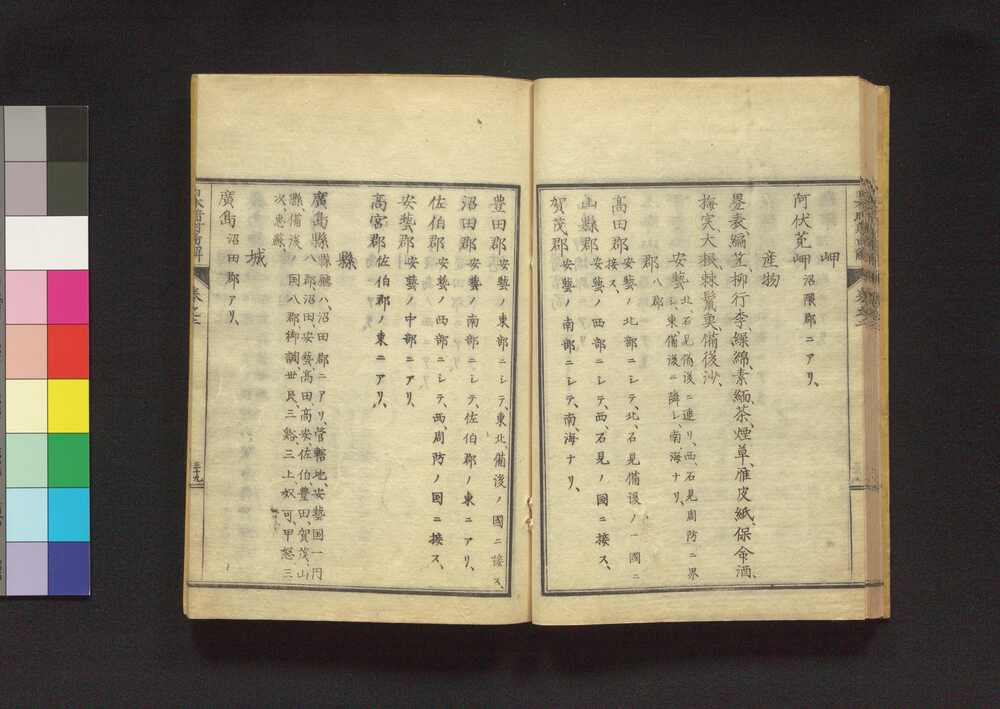 岬
阿伏莵岬沼隈郡ニアリ、
産物
畳表、編笠、柳行李、繰綿、素緬、茶、煙草、雁皮紙、保命酒、
梅実、大根、棘鬣奠、備後沙、
安藝北、石見備後ニ連リ、西、石見周防ニ界
シ、東、備後ニ隣シ、南、海ナリ、
郡八郡
高田郡安藝ノ北部ニシテ、北、石見備後ノ一国ニ
接ス、
山縣郡安藝ノ西部ニシテ、西、石見ノ国ニ接ス、
賀茂郡安藝ノ南部ニシテ、南、海ナリ、
豊田郡安藝ノ東部ニシテ、東北、備後ノ國ニ接ス、
沼田郡安藝ノ南部ニシテ、佐伯郡ノ東ニアリ、
佐伯郡安藝ノ西部ニシテ、西、周防ノ国ニ接ス、
安藝郡安藝ノ中部ニアリ、
高宮郡佐伯郡ノ東ニアリ、
縣
廣島縣縣廰ハ沼田郡ニアリ、管轄地、安藝国一円
八郡沼田、安藝、高田、高安、佐伯、豊田、賀茂、山
縣備後ノ国八郡御調、世良、三谿、三上、奴可、甲怒、三
次、恵蘇、
城
廣島沼田郡アリ、
卷之二
三十九